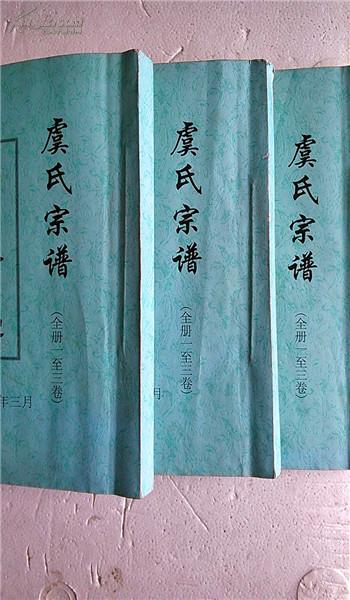 虞氏宗谱
(全册一至三卷)
年三月
虞氏宗谱
(全册一至三卷)
月
虞氏宗谱
(全册一至三卷)